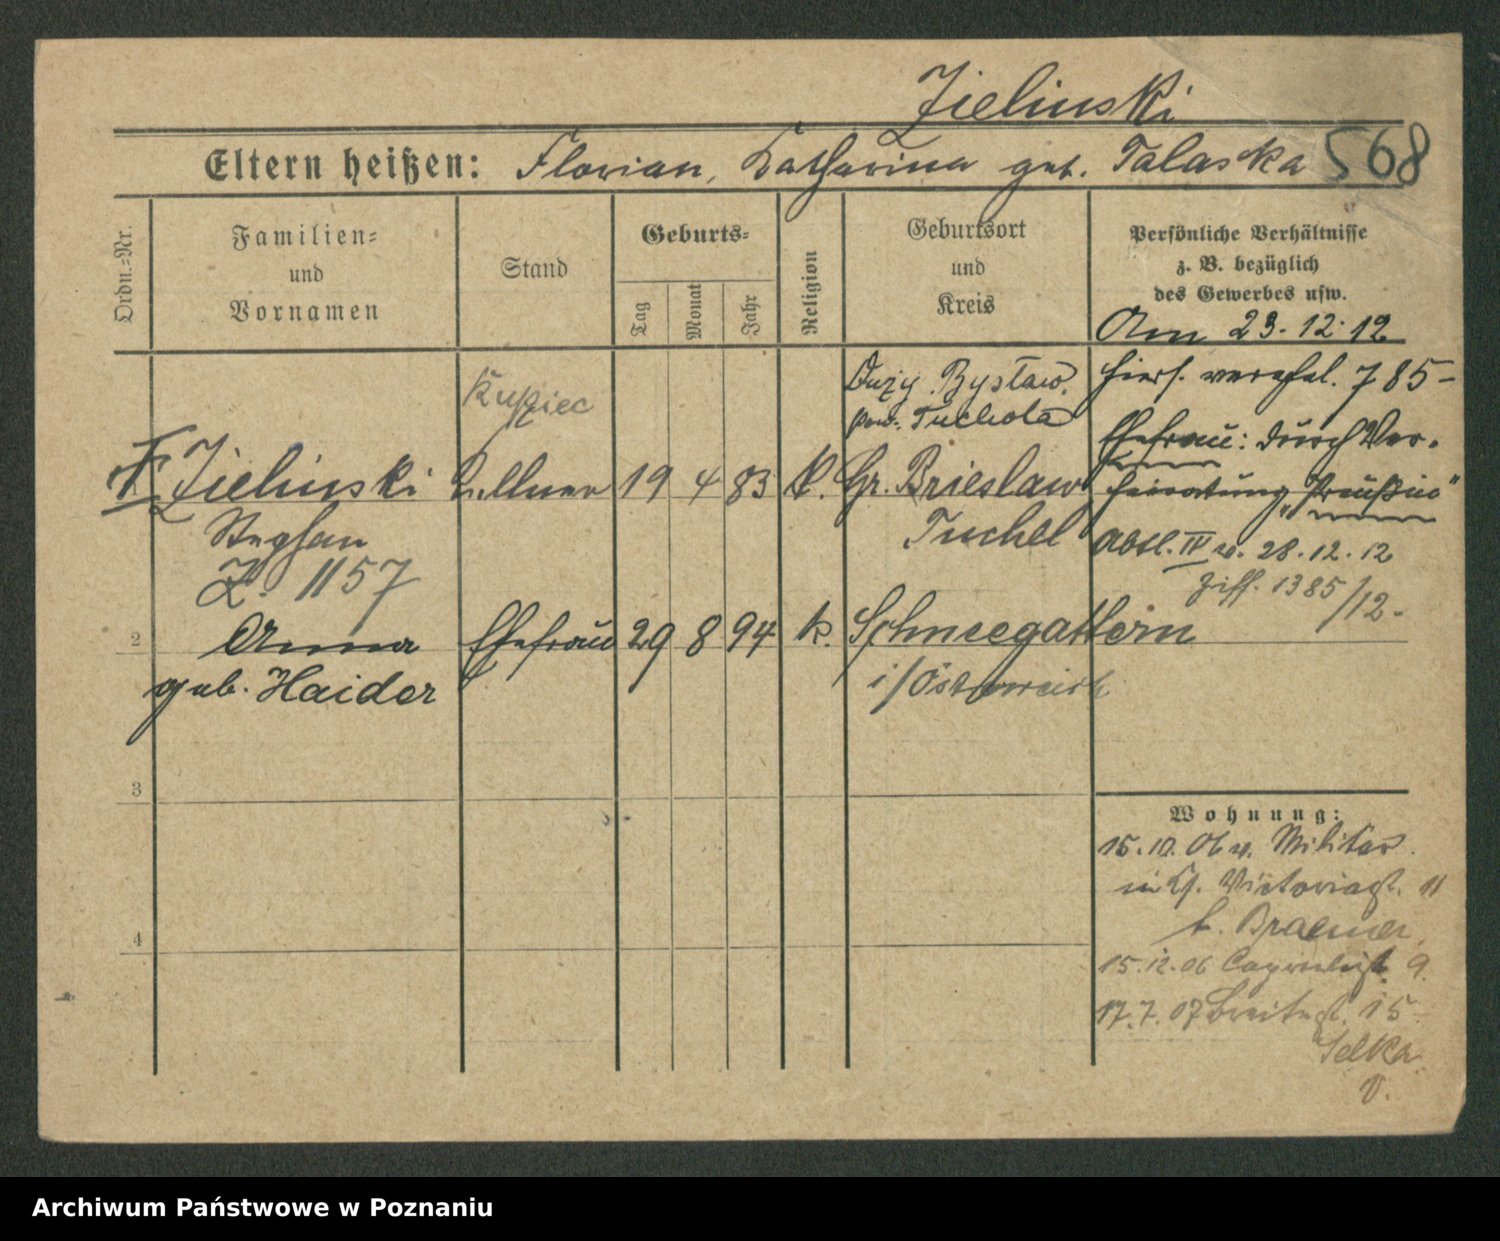 Zielinski
Eltern heißen: Florian, Katharina geb. Talaska 568
Ordn.-Nr.
Familien-
und
Vornamen
Stand
Geburts-
Tag
Monat
Jahr
Religion
Geburtsort
und
Kreis
Persönliche Verhältnisse
z. B. bezüglich
des Gewerbes usw.
Am 23.12.12
hier. verehel. 785-
Ehefrau: durch Ver-
heiratung „Preußin“
Abtl. IV v. 28.12.12
Ziff. 1385/12-
Kupiec
Duży Bysław
pow. Tuchola
Zielinski Kellner 19 4 83 k. Gr. Brieslaw
Stephan Tuchel
Z. 1157
2 Anna Ehefrau 29 8 94 k. Schneegattern
geb. Haider i/Österreich
3
4
Wohnung:
15.10.06 v. Militär
in Victoriast. 11
b. Braemer
15.12.06 9.
17.7.07 Breitest. 15
Selka
V.